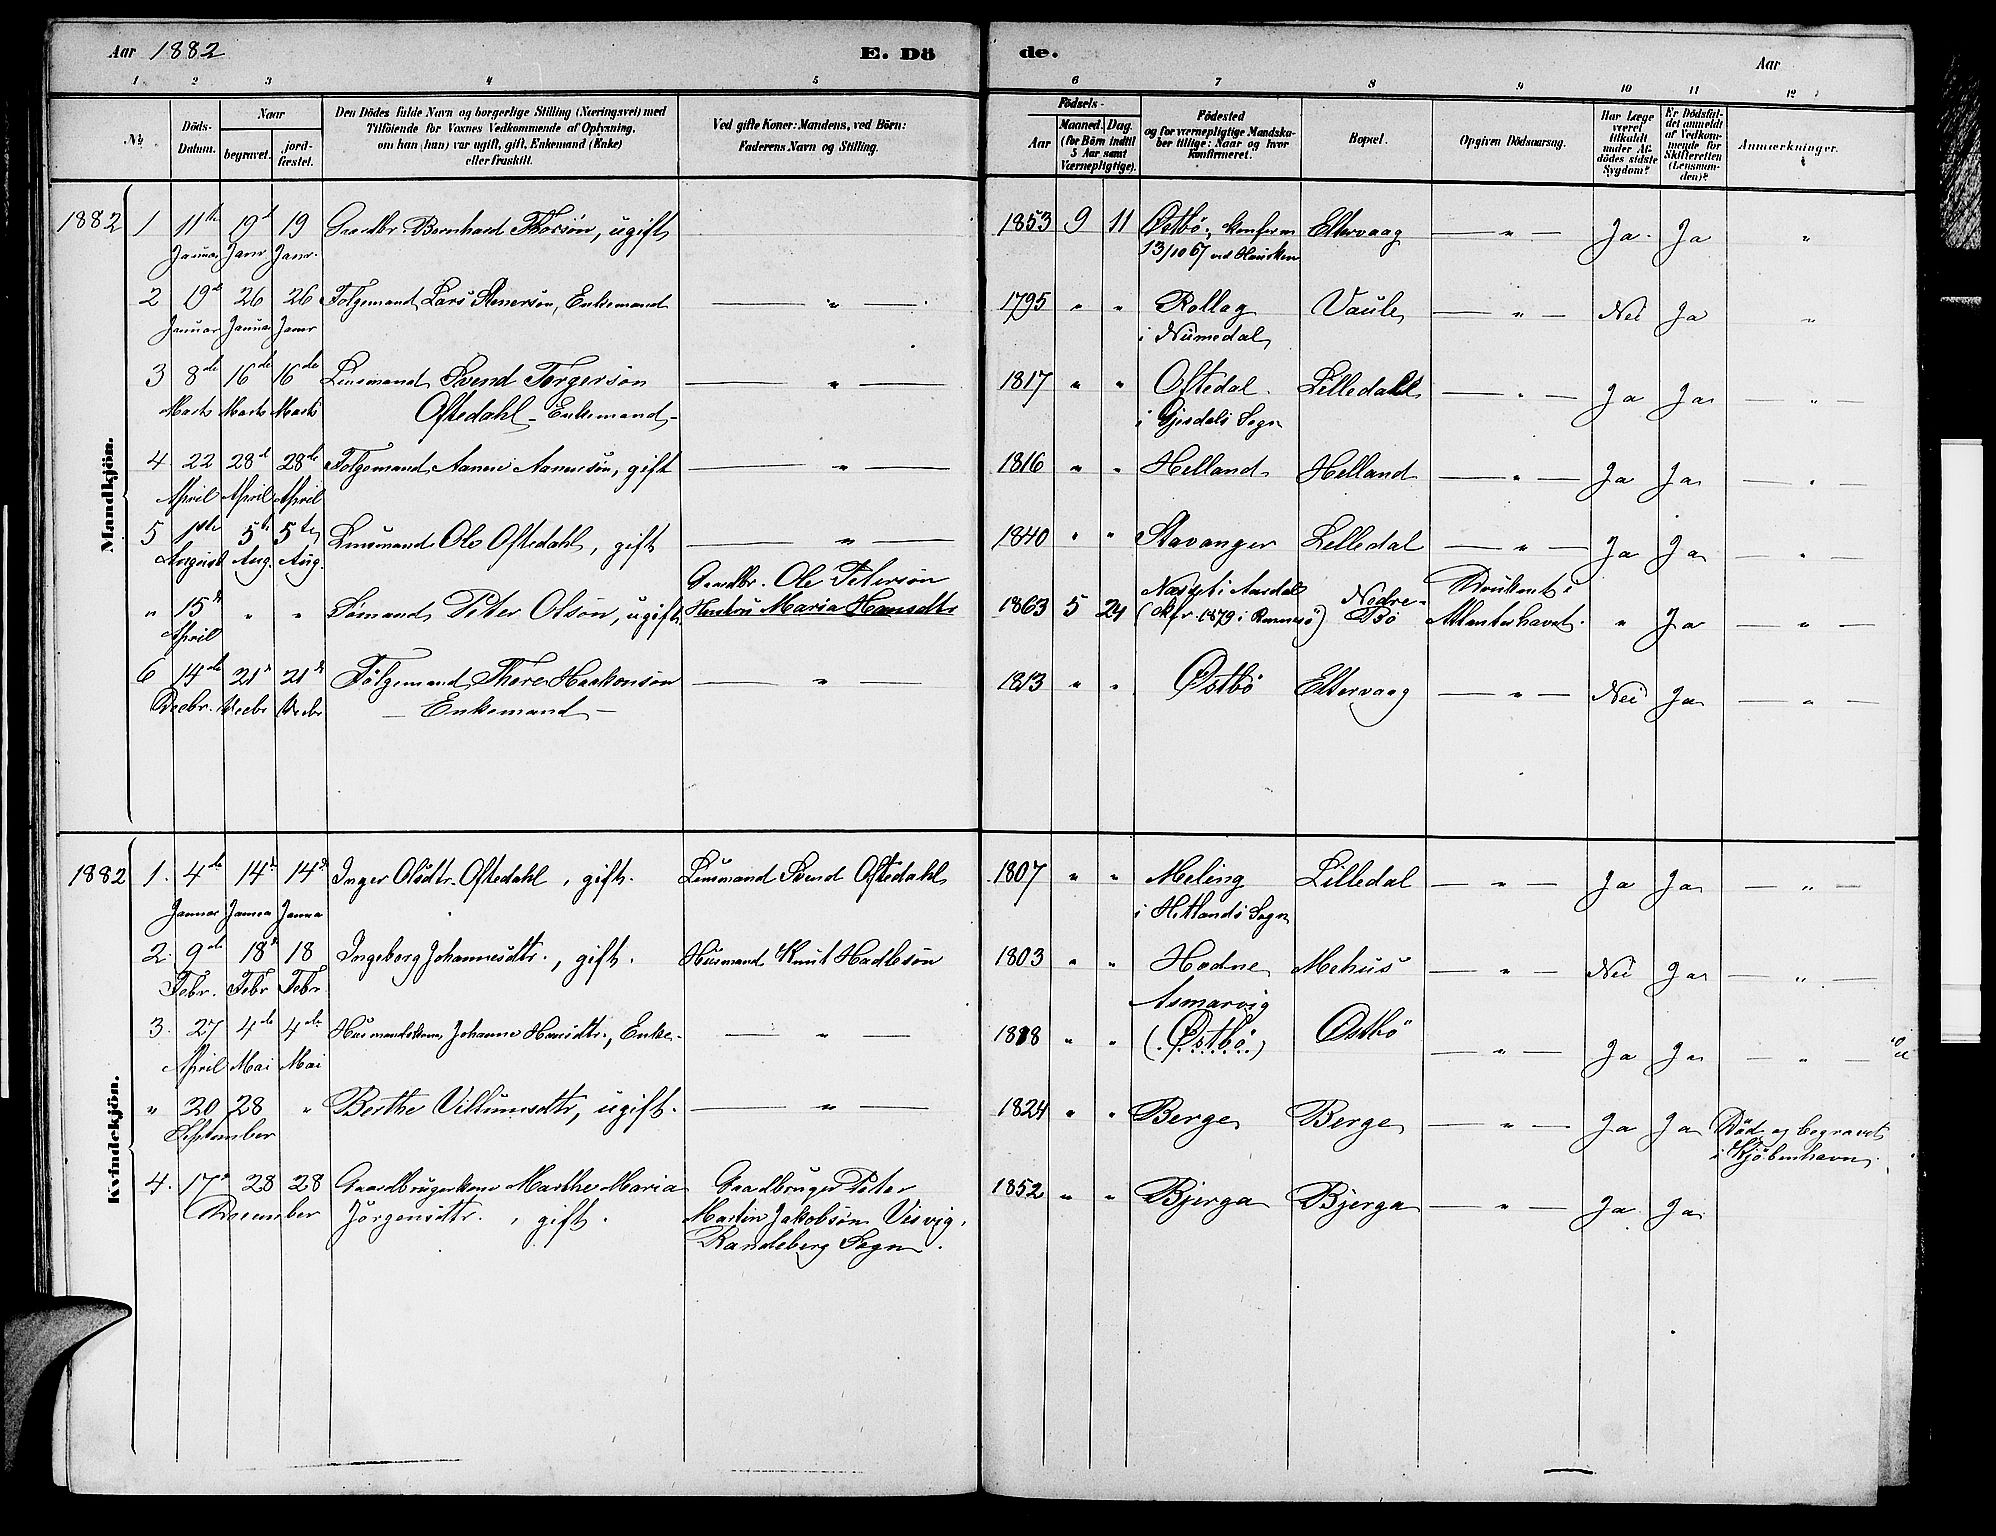 Aar 1882 E. Dö de. Aar
1 2 3 4 5 6 7 8 9 10 11 12
No. Döds-Datum. Naar begravet. jordfæstet. Den Dödes fulde Navn og borgerlige Stilling (Næringsvei) med Tilföiende for Voxnes Vedkommende af Oplysning, om han (hun) var ugift, gift, Enkemand (Enke) eller fraskilt. Ved gifte Koner: Mandens, ved Börn: Faderens Navn og Stilling. Födsels- Aar Maaned. Dag. (for Börn indtil 5 Aar samt Værnepligtige). Födested og for værnepligtige Mandskaber tillige: Naar og hvor konfirmeret. Bopæl. Opgiven Dödsaarsag. Har Læge været tilkaldt under Afdödes sidste Sygdom? Er Dödsfaldet anmeldt af Vedkommende for Skifteretten (Lensmanden)? Anmærkninger.
Mandkjön.
1882 1 11te 19d 19 Gaardbr. Bernhard Thorsøn, ugift 1853 9 11 Østbø, Konferm Eltervaag — " — Ja. Ja "
Januar Janr Janr. 13/10 67 ved Hausken
2 19d 26 26 Følgemand Lars Stenersøn, Enkemand — " — 1795 " " Rollag Vaule — " — Nei Ja "
Januar Januar Janr i Numedal
3 8de 16de 16de Lensmand Svend Torgersøn — " — 1817 " " Oftedal Lilledahl — " — Ja Ja — " —
Marts Marts Marts Oftedahl - Enkemand - i Gjesdals Sogn
4 22 28d 28de Følgemand Aanen Aanensøn, gift — " — 1816 " " Helland Helland — " — Ja Ja — " —
April April April
5 1ste 5te 5te Lensmand Ole Oftedahl, gift — " — 1840 " " Stavanger Lilledal — " — Ja Ja — " —
August Aug. Aug.
Gaardbr. Ole Petersøn Druknet i
" 15de " " Sømand Peter Olsøn, ugift. Hustru Maria Hansdtr 1863 5 24 (Kfr. 1879 i Rennesø) Nedre-Bø Atlanterhavet. " Ja — " —
April
6 14de 21d 21d Følgemand Thore Haakonsøn — " — 1813 " " Østbø Eltervaag — " — Nei Ja — " —
Decbr. Decbr Decbr — Enkemand —
Kvindekjön.
1882 1. 4de 14d 14d Inger Olsdtr. Oftedahl, gift. Lensmand Svend Oftedahl 1807 " " Meling Lilledal — " — Ja Ja — " —
Januar Janua Janua i Hetlands Sogn
2. 9de 18d 18 Ingeborg Johannesdtr., gift. Husmand Knut Hadlesøn 1803 " " Hodne Mehus — " — Nei Ja — " —
Febr. Febr Febr. Asmarvig
3. 27 4de 4de Husmandskone Johanne Hansdtr., Enke. — " — 1818 " " (Østbø) Østbø — " — Ja Ja — " —
April Mai Mai
" 20 28 " Berthe Villumsdtr, ugift. — " — 1824 " " Berge Berge — " — Ja Ja Død og begravet
September i Kjøbenhavn.
4. 17d 28 28 Gaardbrugerkone Marthe Maria Gaardbruger Peter 1852 " " Bjerga Bjerga — " — Ja Ja
December Jørgensdtr., gift. Martin Jakobsøn Visvig,
Randeberg Sogn.